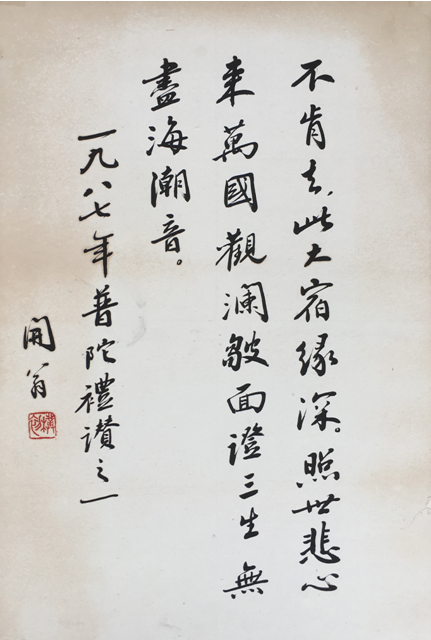 不肯去、此大宿缘深。照世悲心
来萬國觀澜皺面證三生無
盡海潮音。
一九八七年普陀禮讃之一
開翁